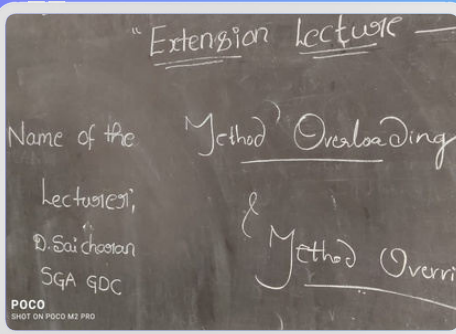 "Extension Lecture
Name of the
Lecturer;
D. Sai charan
SGA GDC
Method Overloading
&
Method Overri
POCO
SHOT ON POCO M2 PRO